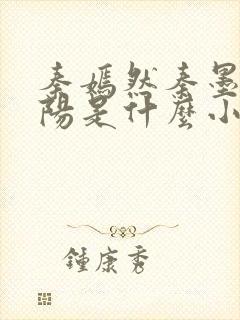 秦嫣然秦墨
陽是什麼小
鍾康秀